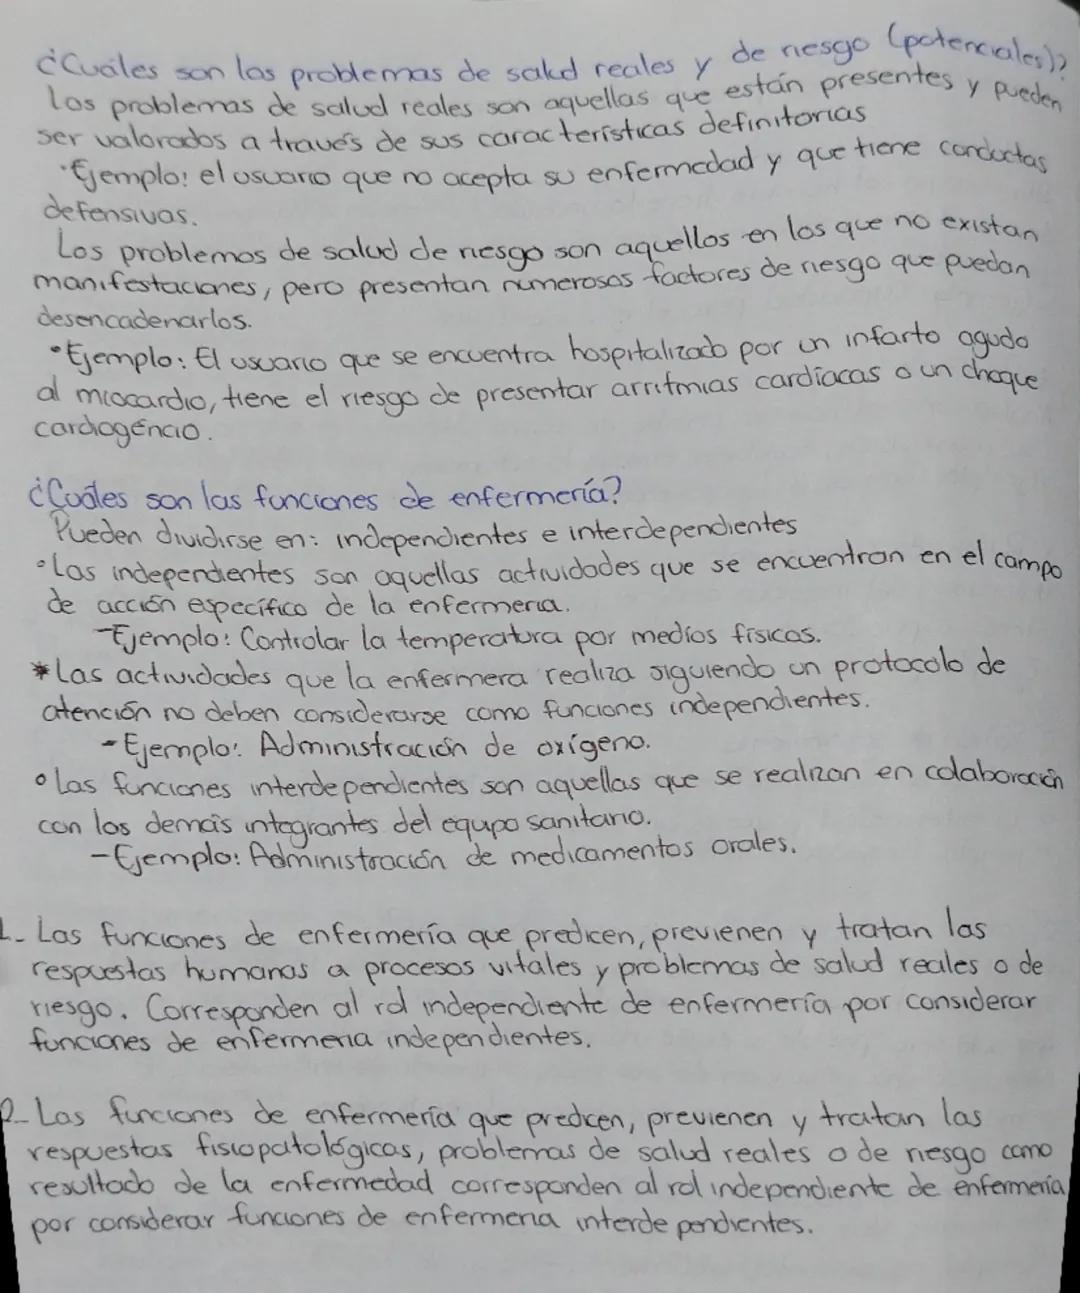 ¿Cuáles son los problemas de salud reales y de riesgo (potenciales)?
Los problemas de salud reales son aquellas que están presentes y pueden
ser valorados a través de sus características definitorias
·Ejemplo: el usuario que no acepta su enfermedad y que tiene conductas
defensivas.
Los problemas de salud de riesgo son aquellos en los que no existan
manifestaciones, pero presentan numerosos factores de riesgo que puedan
desencadenarlos.
•Ejemplo: El usuario que se encuentra hospitalizado por un infarto agudo
al miocardio, tiene el riesgo de presentar arritmias cardíacas o un choque
cardiogéncio.
¿Cuáles son las funciones de enfermería?
Pueden dividirse en: independientes e interdependientes
•Las independientes son aquellas actividades que se encuentran en el campo
de acción específico de la enfermería.
-Ejemplo: Controlar la temperatura por medios físicos.
*Las actividades que la enfermera realiza siguiendo un protocolo de
atención no deben considerarse como funciones independientes.
-Ejemplo: Administración de oxígeno.
•Las funciones interdependientes son aquellas que se realizan en colaboración
con los demás integrantes del equipo sanitario.
-Ejemplo: Administración de medicamentos orales.
1- Las funciones de enfermería que predicen, previenen y tratan las
respuestas humanas a procesos vitales y problemas de salud reales o de
riesgo. Corresponden al rol independiente de enfermería por considerar
funciones de enfermeria independientes.
2- Las funciones de enfermería que predicen, previenen y tratan las
respuestas fisiopatológicas, problemas de salud reales o de riesgo como
resultado de la enfermedad corresponden al rol independiente de enfermería
por considerar funciones de enfermeria interdependientes.